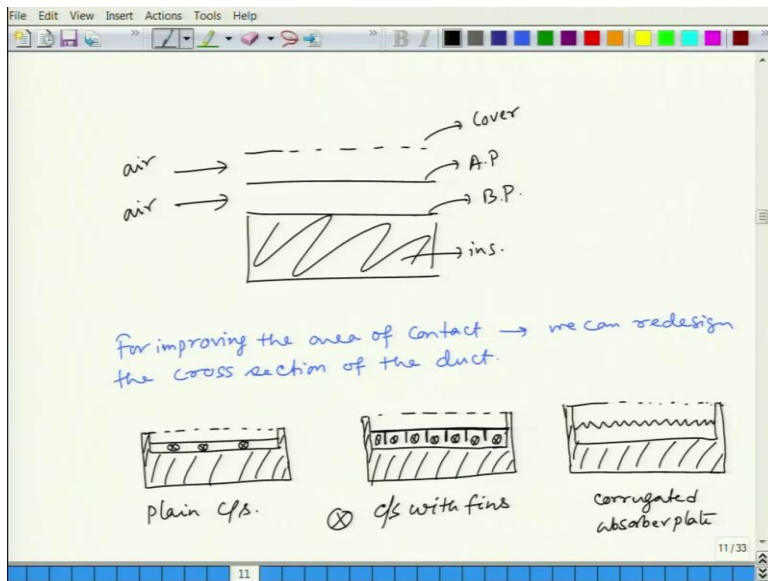 File Edit View Insert Actions Tools Help
B I
Cover
air
A.P
air
B.P.
ins.
For improving the area of contact → we can redesign
the cross section of the duct.
plain c/s.
c/s with fins
corrugated
absorber plate
11/33
11